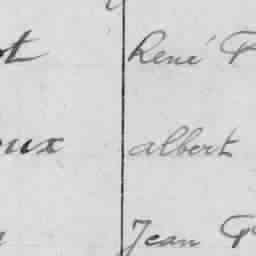 t René P
oux albert
Jean P